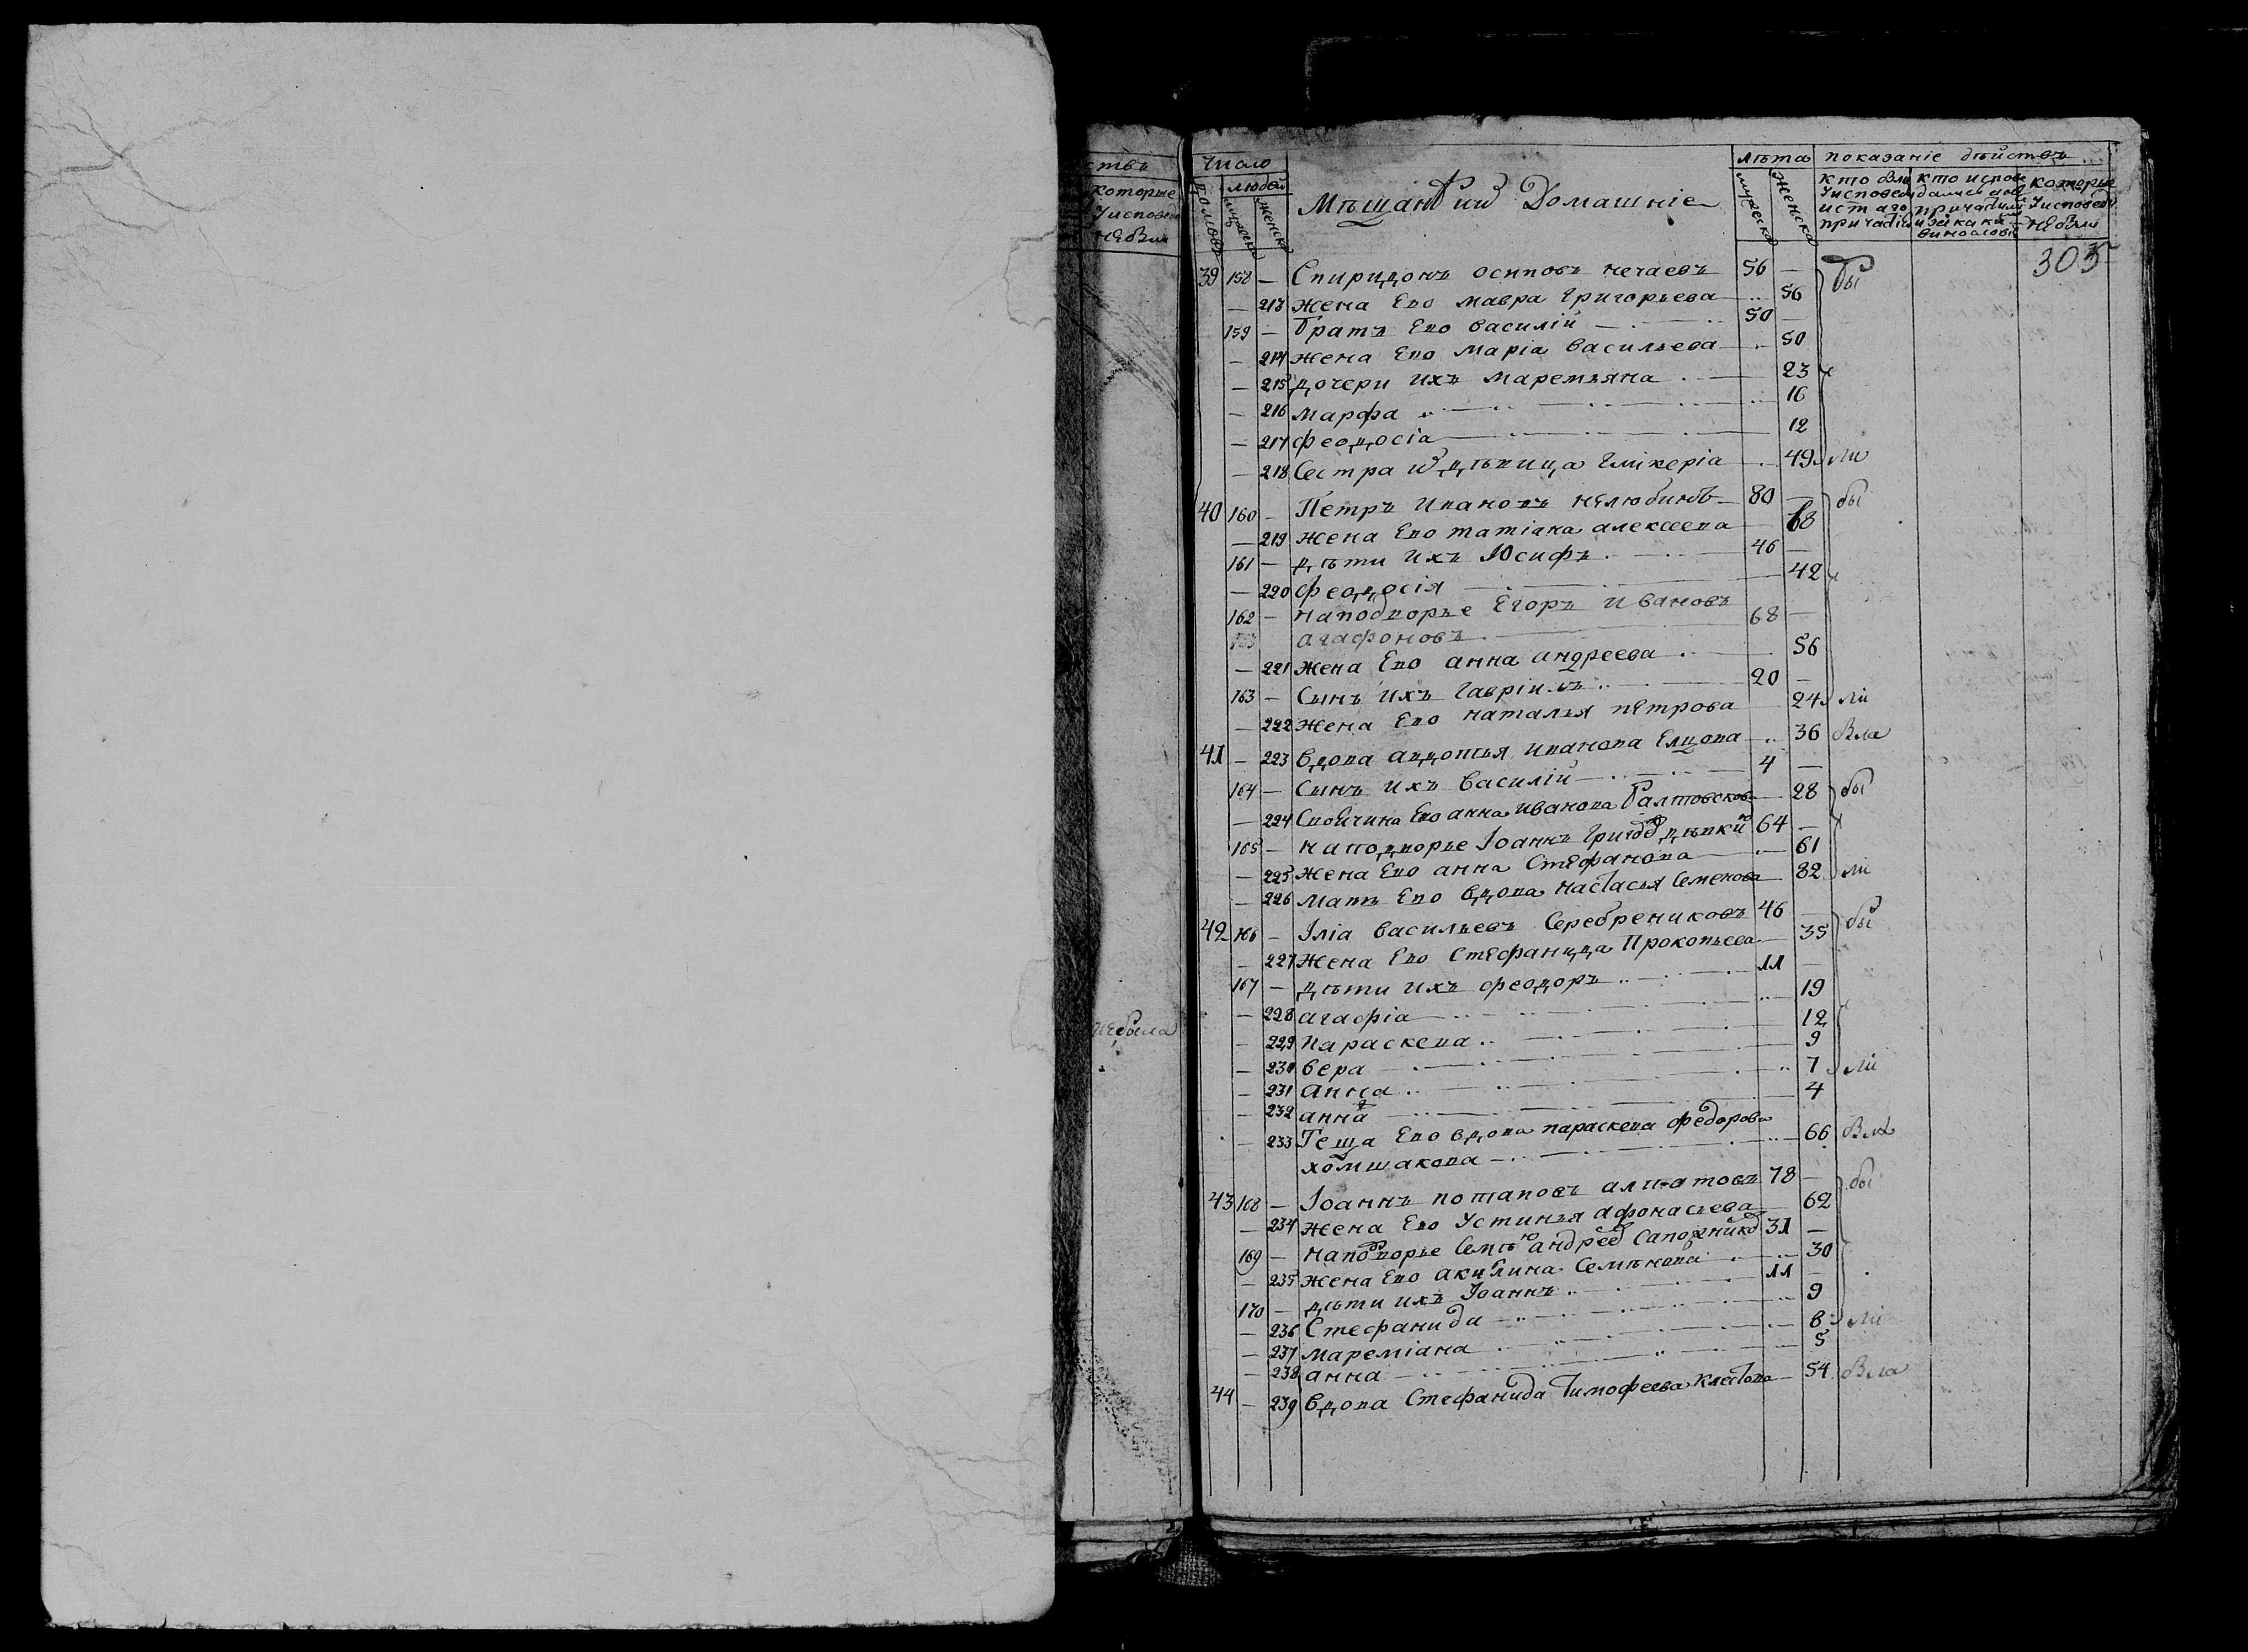 ствъ
которые
Уисповеди
небыли
небыла
Число
лѣта показаніе дѣйствъ
домовъ
людей
мужеска
женска
Мѣщане и их Домашніе
мужеска
женска
кто были
Уисповеди
и ст аго
причастія
кто испове
дался
а не
причастился
и за какой
виною
которые
Уисповеди
не были
305
39 158 — Спиридонъ осиповъ нечаевъ 56 — бы
— 213 жена Его мавра Григорьева 56
159 — братъ Его василій 50 —
— 214 жена Его маріа васильева 50
— 215 дочери ихъ маремьяна 23
— 216 марфа 16
— 217 феодосіа 12
— 218 Сестра дѣвица Гликеріа 49 ли
40 160 — Петръ Ивановъ нелюбинъ 80 — бы
— 219 жена Его татіана алексеева 68
161 — дѣти ихъ Юсифъ 46 —
— 220 феодосія 42
162 — наподворье Егоръ Ивановъ
агафоновъ 68 —
— 221 жена Его анна андреева 56
163 — Сынъ ихъ Гавріилъ 20 —
— 222 жена Его наталья петрова 24 ли
41 — 223 вдова авдотья иванова Елцова 36 была
164 — Сынъ ихъ василій 4 —
— 224 Своичина Его анна иванова Балтовскова 28 бы
165 — наподворье Іоаннъ Григо 64 —
— 225 жена Его анна Стефанова 61
— 226 мать Его вдова настасья Семенова 82 ли
42 166 — Іліа васильевъ Серебрениковъ 46 — бы
— 227 жена Его Стефанида Прокопьева 35
167 — дѣти ихъ феодоръ 11 —
— 228 агафіа 19
— 229 параскева 12
— 230 вера 9
— 231 анна 7 ли
— 232 анна 4
— 233 Теща Его вдова параскева федорова
хомшакова 66 была
43 168 — Іоаннъ потаповъ алпатовъ 78 — бы
— 234 жена Его Устинья афонасьева 62
169 — наподворье Семенъ андрее Сапожнико 31 —
— 235 жена Его акилина Семѣнова 30
170 — дѣти ихъ Іоаннъ 11 —
— 236 Стефанида 9
— 237 мареміана 8 ли
— 238 анна 5
44 — 239 вдова Стефанида Тимофеева Клестова 54 была